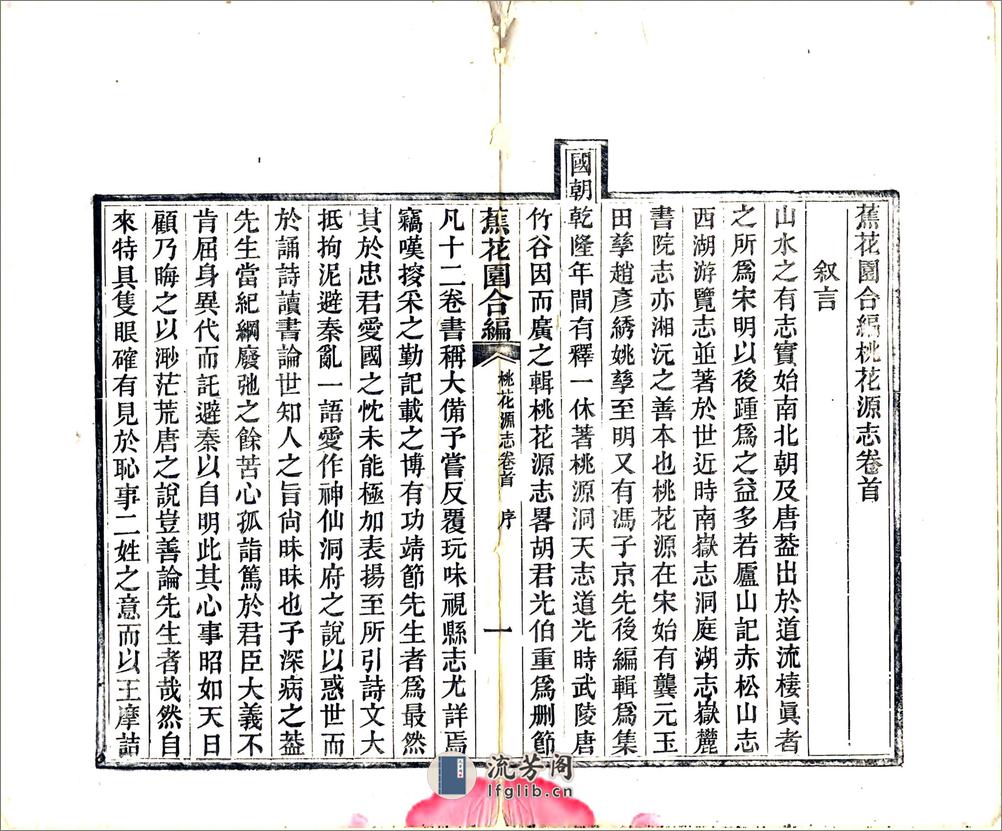 蕉花園合編桃花源志卷首
叙言
山水之有志實始南北朝及唐葢出於道流棲眞者
之所爲宋明以後踵爲之益多若廬山記赤松山志
西湖游覽志並著於世近時南嶽志洞庭湖志嶽麓
書院志亦湘沅之善本也桃花源在宋始有龔元玉
田孳趙彥綉姚孳至明又有馮子京先後編輯爲集
國朝乾隆年間有釋一休著桃源洞天志道光時武陵唐
竹谷因而廣之輯桃花源志畧胡君光伯重爲删節
蕉花園合編 桃花源志卷首 序 一
凡十二卷書稱大備予嘗反覆玩味視縣志尤詳焉
竊嘆搜采之勤記載之博有功靖節先生者爲最然
其於忠君愛國之忱未能極加表揚至所引詩文大
抵拘泥避秦亂一語愛作神仙洞府之說以惑世而
於誦詩讀書論世知人之旨尙昧昧也予深病之葢
先生當紀綱廢弛之餘苦心孤詣篤於君臣大義不
肯屈身異代而託避秦以自明此其心事昭如天日
顧乃晦之以渺茫荒唐之說豈善論先生者哉然自
來特具隻眼確有見於恥事二姓之意而以王摩詰
流芳阁
lfglib.cn